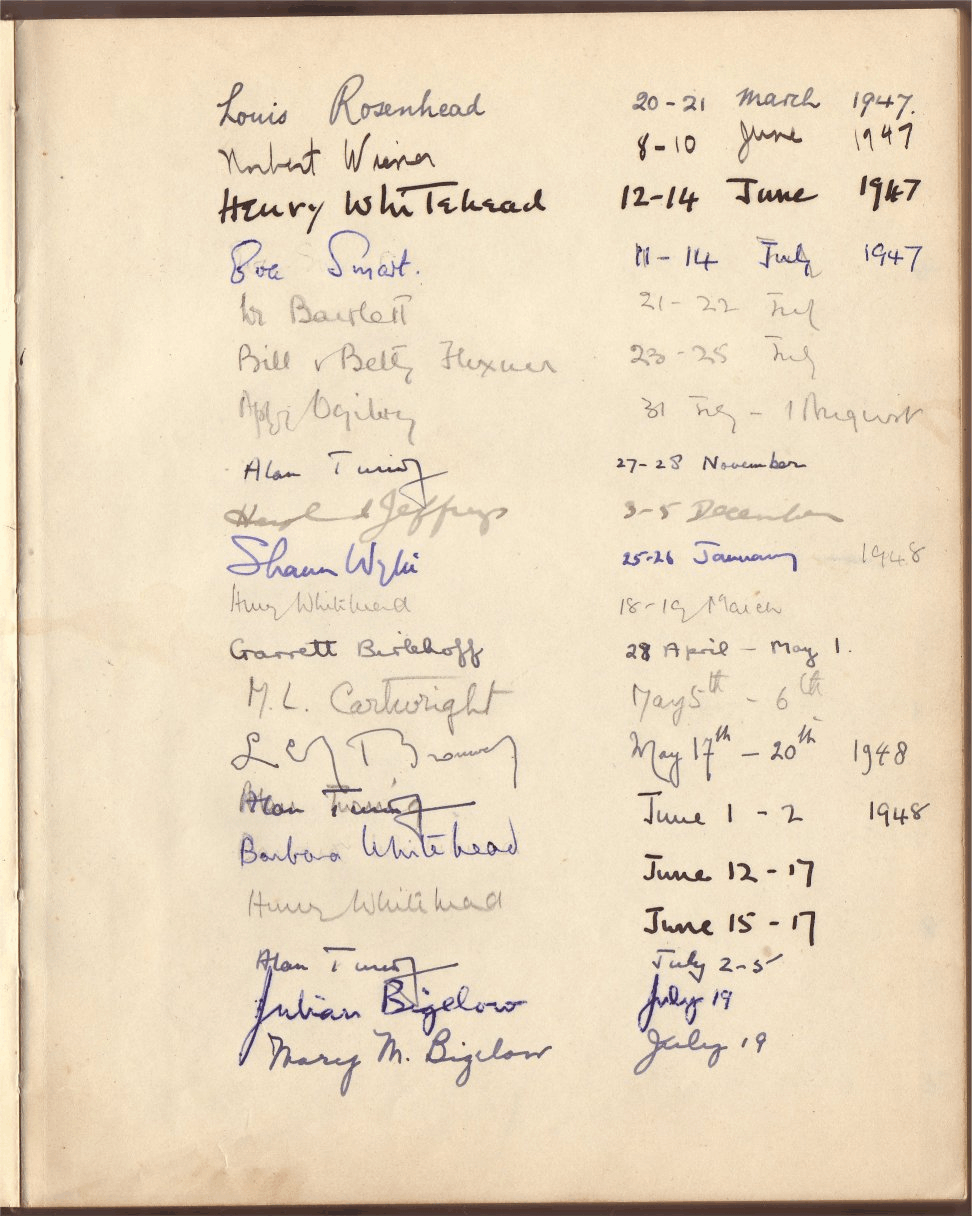 Louis Rosenhead 20-21 March 1947.
Norbert Wiener 8-10 June 1947
Henry Whitehead 12-14 June 1947
Eva Smart. 11-14 July 1947
Bartlett 21-22 July
Bill & Betty Flexner 23-25 July
Ogilvy 31 July - 1 August
Alan Turing 27-28 November
Harold Jeffreys 3-5 December
Shaun Wylie 25-26 January 1948
Henry Whitehead 18-19 March
Garrett Birkhoff 28 April - May 1.
M.L. Cartwright May 5th - 6th
May 17th - 20th 1948
Alan Turing June 1 - 2 1948
Barbara Whitehead June 12-17
Henry Whitehead June 15-17
Alan Turing July 2-5
Julian Bigelow July 19
Mary M. Bigelow July 19